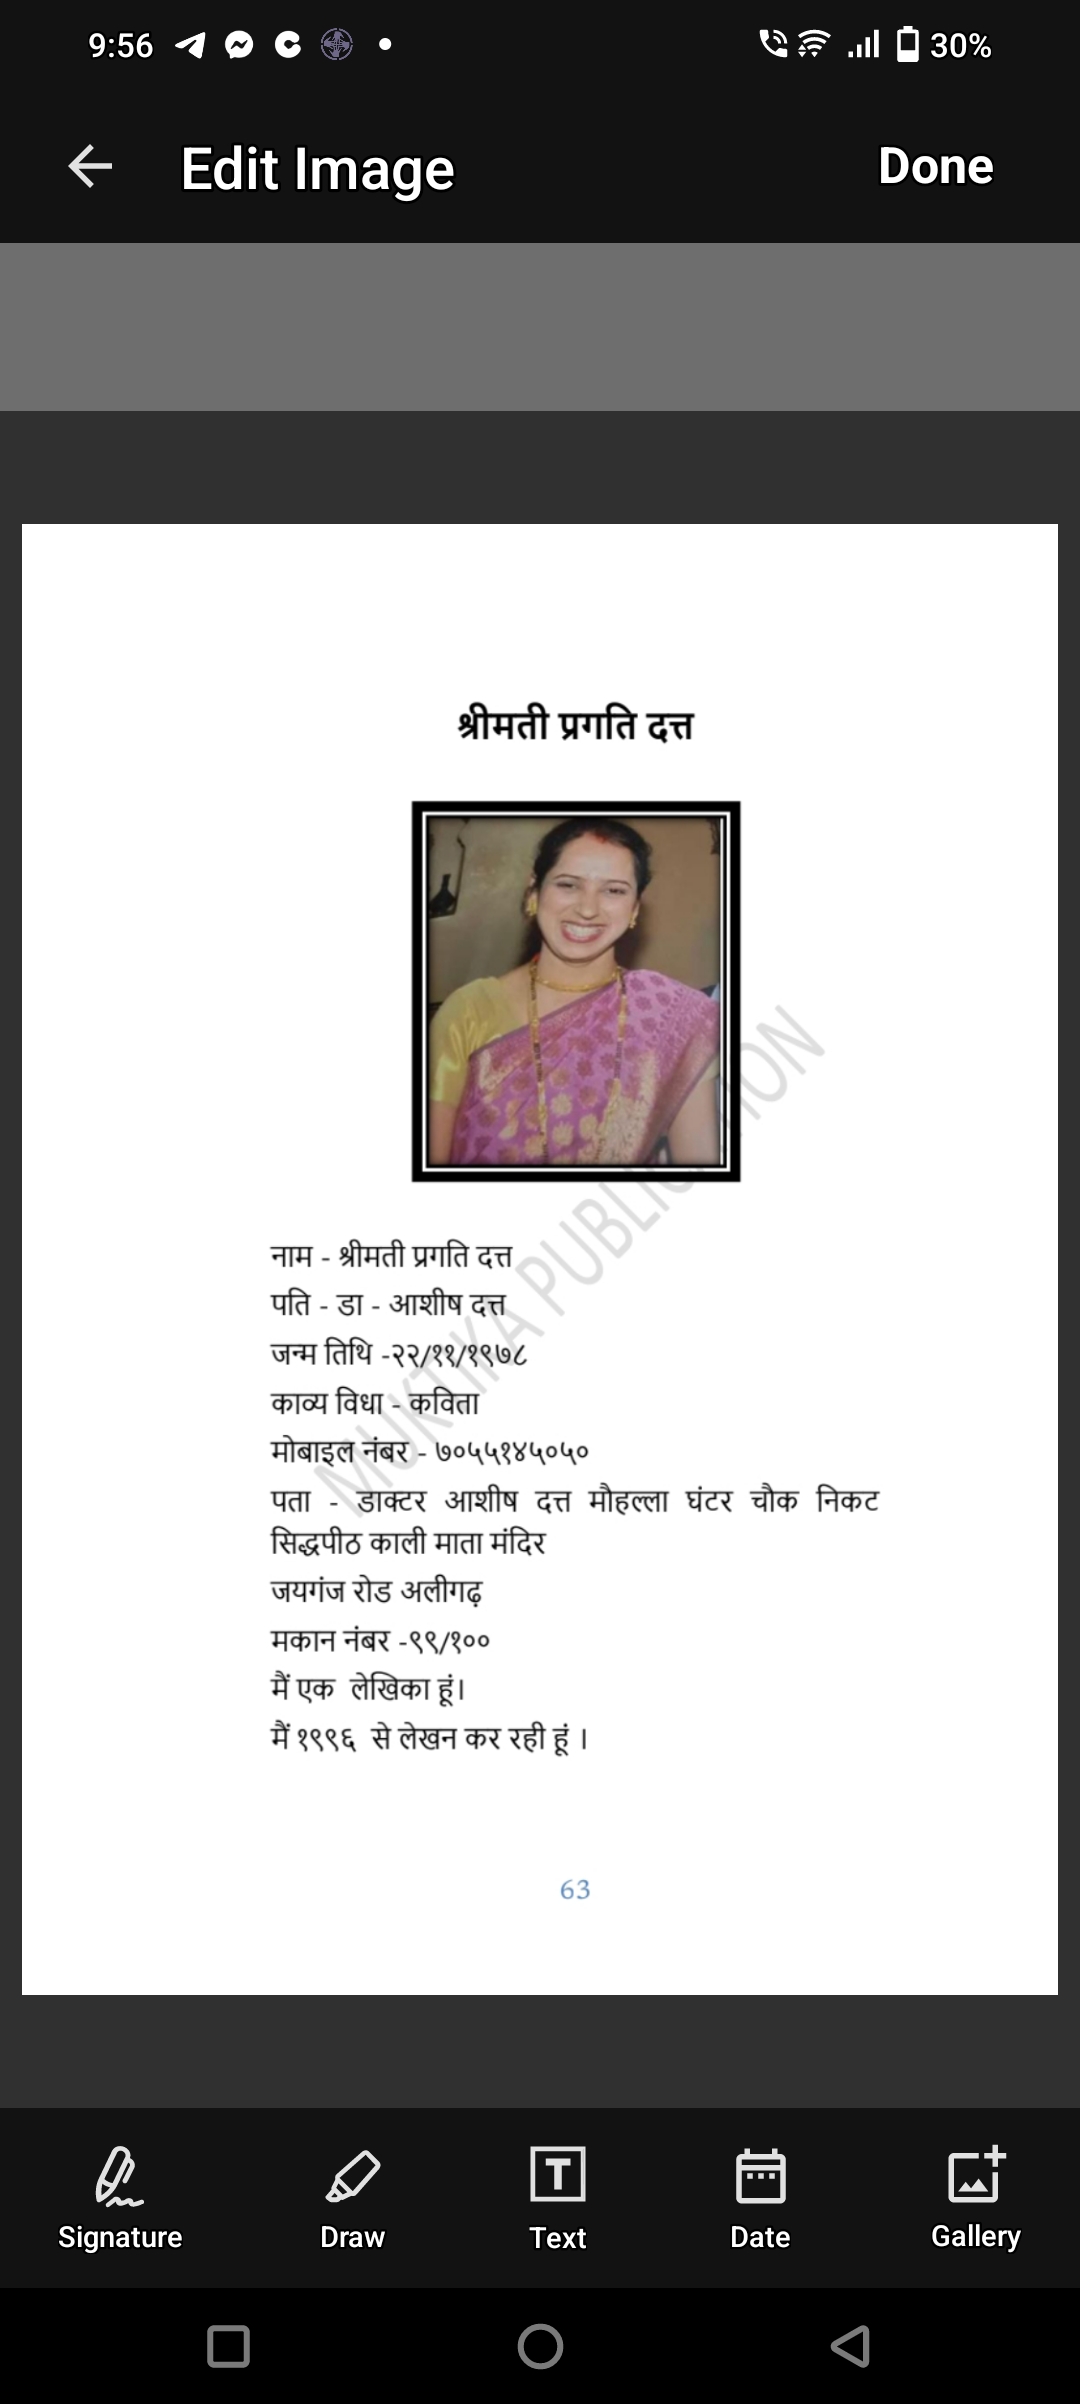 9:56
30%
Edit Image
Done
श्रीमती प्रगति दत्त
MUKTIKA PUBLICATION
नाम - श्रीमती प्रगति दत्त
पति - डा - आशीष दत्त
जन्म तिथि -२२/११/१९७८
काव्य विधा - कविता
मोबाइल नंबर - ७०५५१४५०५०
पता - डाक्टर आशीष दत्त मौहल्ला घंटर चौक निकट
सिद्धपीठ काली माता मंदिर
जयगंज रोड अलीगढ़
मकान नंबर -९९/१००
मैं एक लेखिका हूं।
मैं १९९६ से लेखन कर रही हूं ।
63
Signature
Draw
Text
Date
Gallery